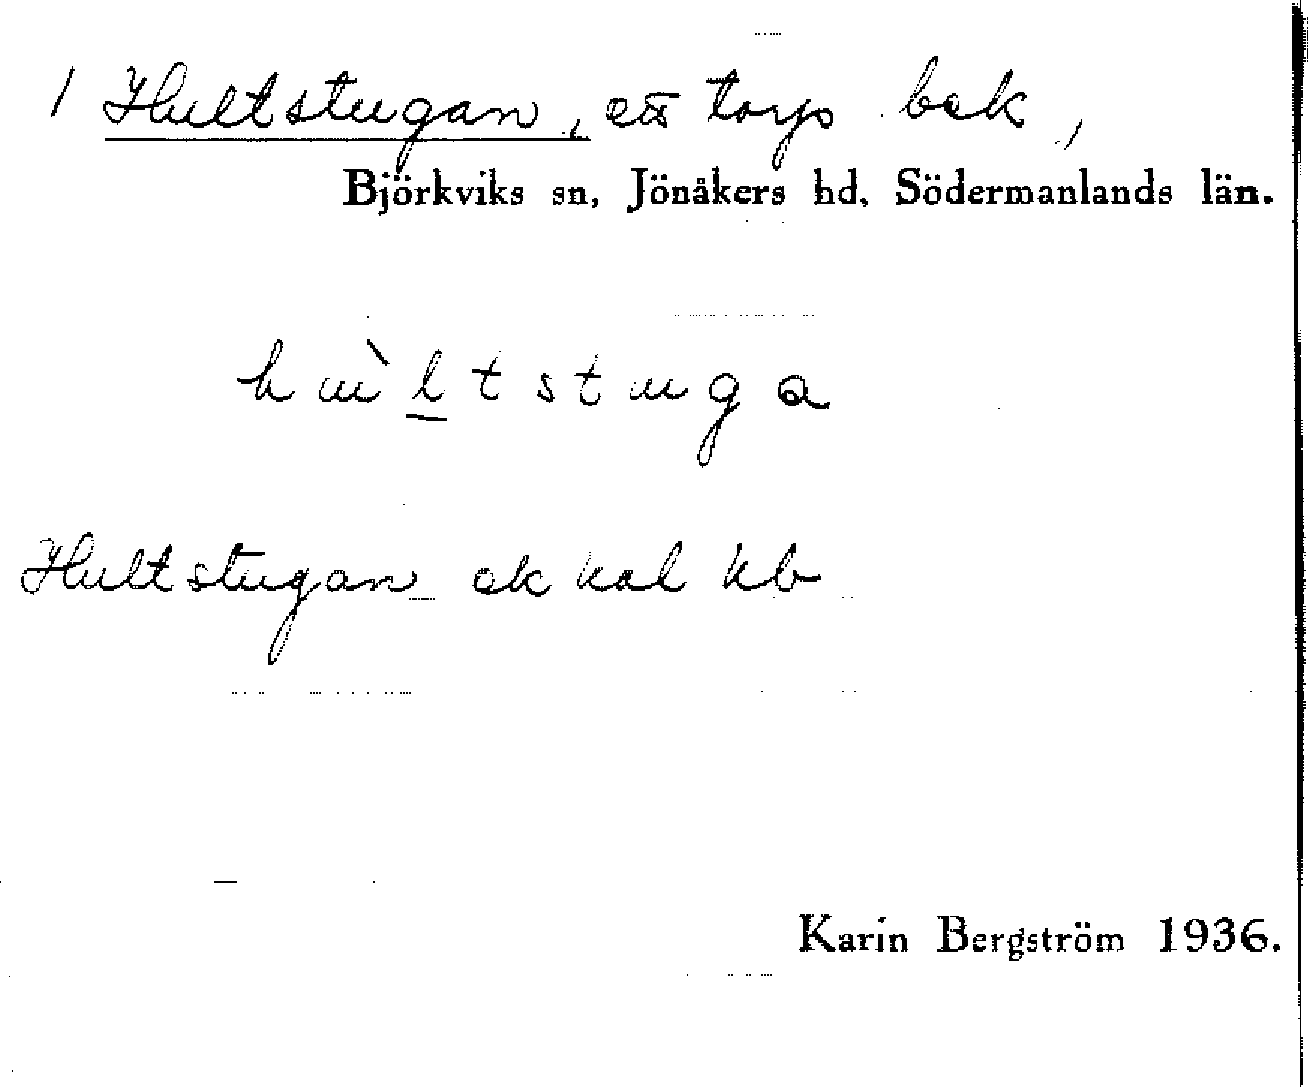 / Hultstugan, ett torp bek,
Björkviks sn, Jönåkers hd, Södermanlands län.
hu̇̀ltstuga
Hultstugan ek kal kb
Karin Bergström 1936.